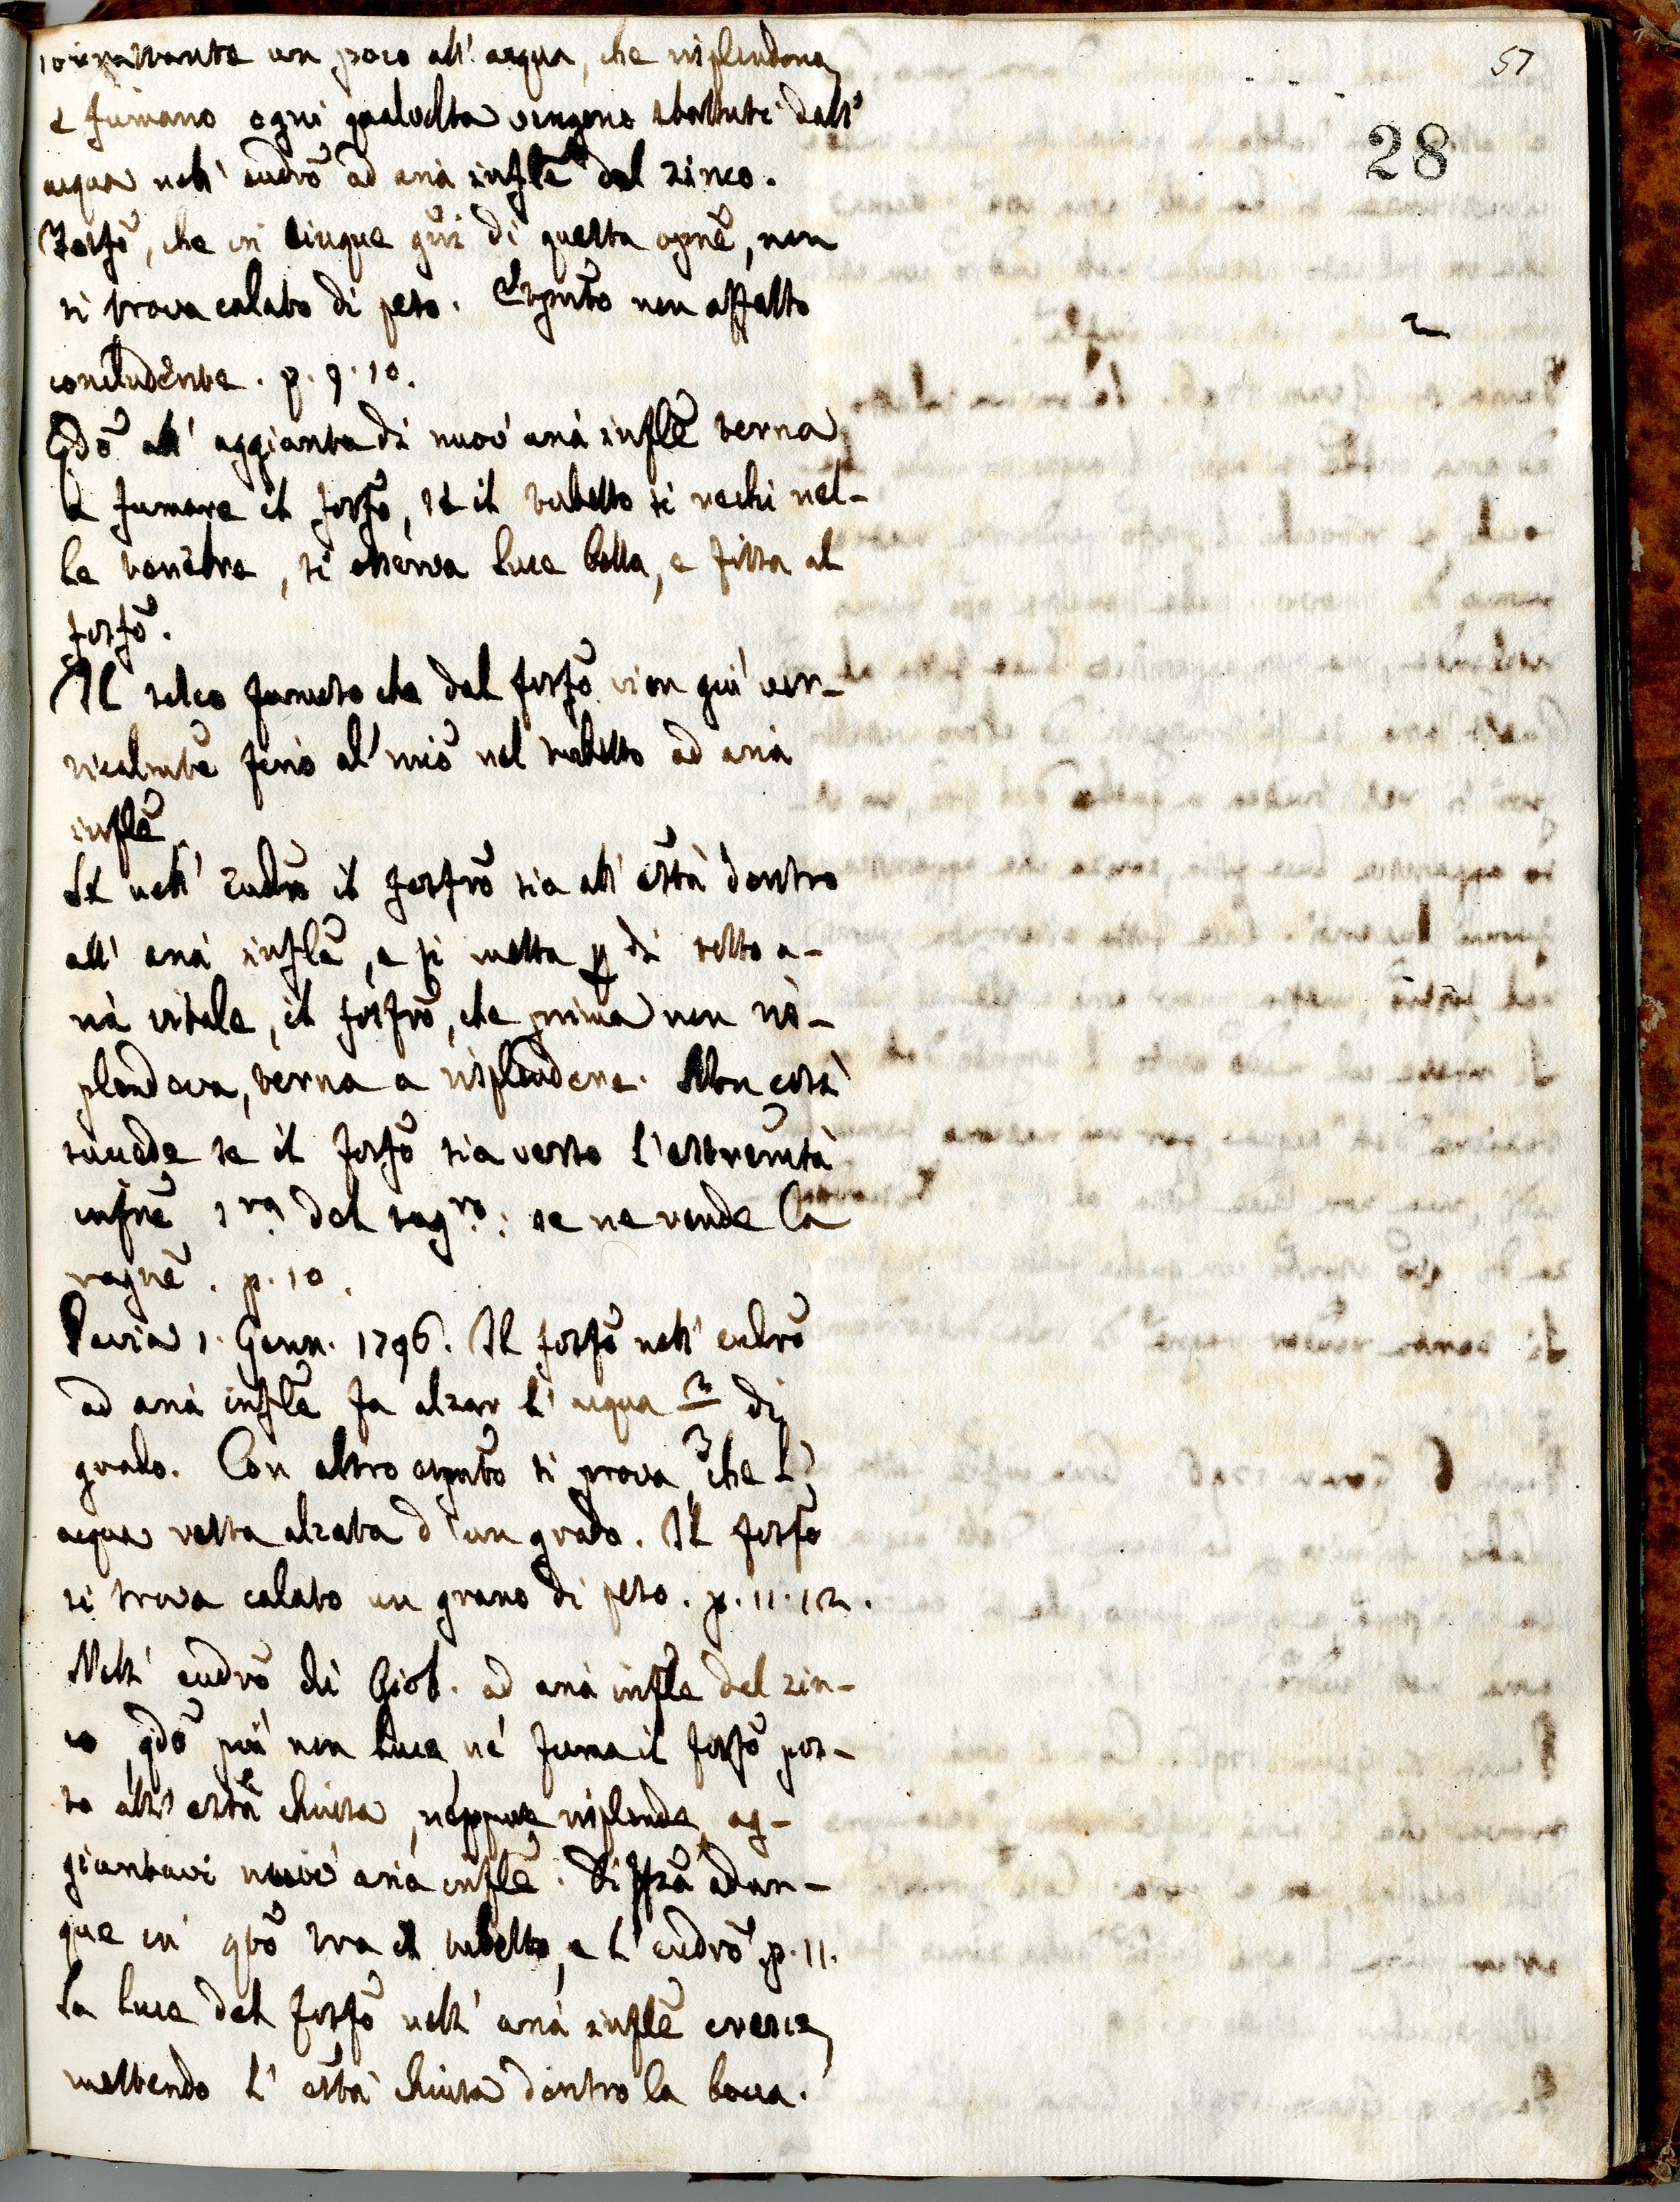 57
28
sormattante un poco all' acqua, che risplendono,
e fumano ogni qualvolta vengono sbattuti dall'
acqua nell' eudrõ ad arià inflẽ dal zinco.
Fosfõ, che in cinque giñi di questa opnẽ, non
si trova calato di peso. Espmtõ non affatto
concludente. p. 9. 10.
Qdõ all' aggiunta di nuov' arià inflẽ torna
a fumare il fosfõ, se il tubetto si rechi nel-
le tenebre, si osserva luce bella, e fissa al
fosfõ.
Il solco fumoso che dal fosfõ vien giù ver-
ticalmtẽ fino al mrcõ nel tubetto ad arià
inflẽ
Se nell' eudrõ il fosfrõ sia all' estã dentro
all' arià inflẽ, e si metta p di sotto a-
rià vitale, il fosfrõ, che prima non ris-
plendeva, torna a risplendere. Non così
succede se il fosfõ sia verso l'estremità
infrẽ 1ra. del sagro.: se ne rende la
ragnẽ. p. 10.
Pavia 1. Genn. 1796. Il fosfõ nell' eudrõ
ad arià inflẽ fa alzar l' acqua 2/3 di
grado. Con altro espmtõ si prova, che l'
acqua resta alzata d' un grado. Il fosfõ
si trova calato un grano di peso. p. 11. 12.
Nell' eudrõ di Giob. ad arià inflẽ del zin-
co, qdõ più non luce, nè fuma il fosfõ pos-
to all' estã chiusa, neppure risplende, ag-
giuntavi nuov' arià inflẽ. Diffzã adun-
que in qtõ tra il tubetto, e l' eudrõ p. 11.
La luce del fosfõ nell' arià inflẽ cresce,
mettendo l' estã chiusa dentro la bocca.